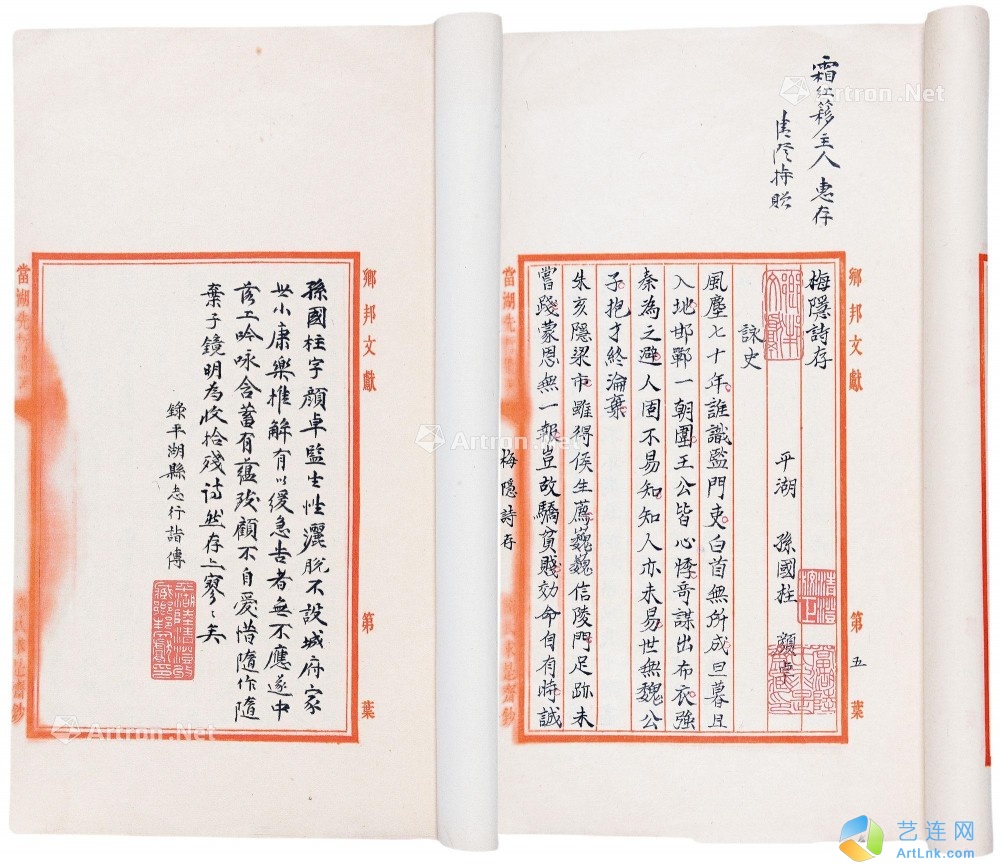 霜红簃主人 惠存
清澄持贈
梅隱詩存
平湖 孫國柱 顔卓
詠史
風塵七十年誰識監門吏白首無所成旦暮且
入地邯鄲一朝圍王公皆心悸奇謀出布衣強
秦為之避人固不易知知人亦未易世無魏公
子抱才終淪棄
朱亥隱梁市雖得侯生薦巍巍信陵門足跡未
嘗踐蒙恩無一報豈故驕貧賤効命自有時誠
鄉邦文獻
第五葉
當湖先哲遺著
梅隱詩存
孫國柱字顔卓監生性灑脫不設城府家
世小康樂推解有以緩急告者無不應遂中
落工吟咏含蓄有蘊致顧不自愛惜隨作隨
棄子鏡明為收拾殘詩然存亦寥〻矣
錄平湖縣志行誼傳
鄉邦文獻
第葉
當湖先哲遺著
Artron.Net
艺连网
ArtLnk.com